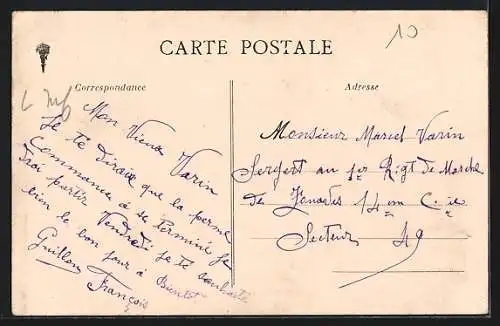 CARTE POSTALE
10
Correspondance
Adresse
Mon Vieux Varin
Je te dirais que la perme
Commence a se terminé je
vrai partir Vendredi je te souhaite
bien le bon jour à Bientot
Guillon François
Monsieur Marcel Varin
Sergent au 1er Rigt de Marche
de Zouaves 14em Cie
Secteur 49